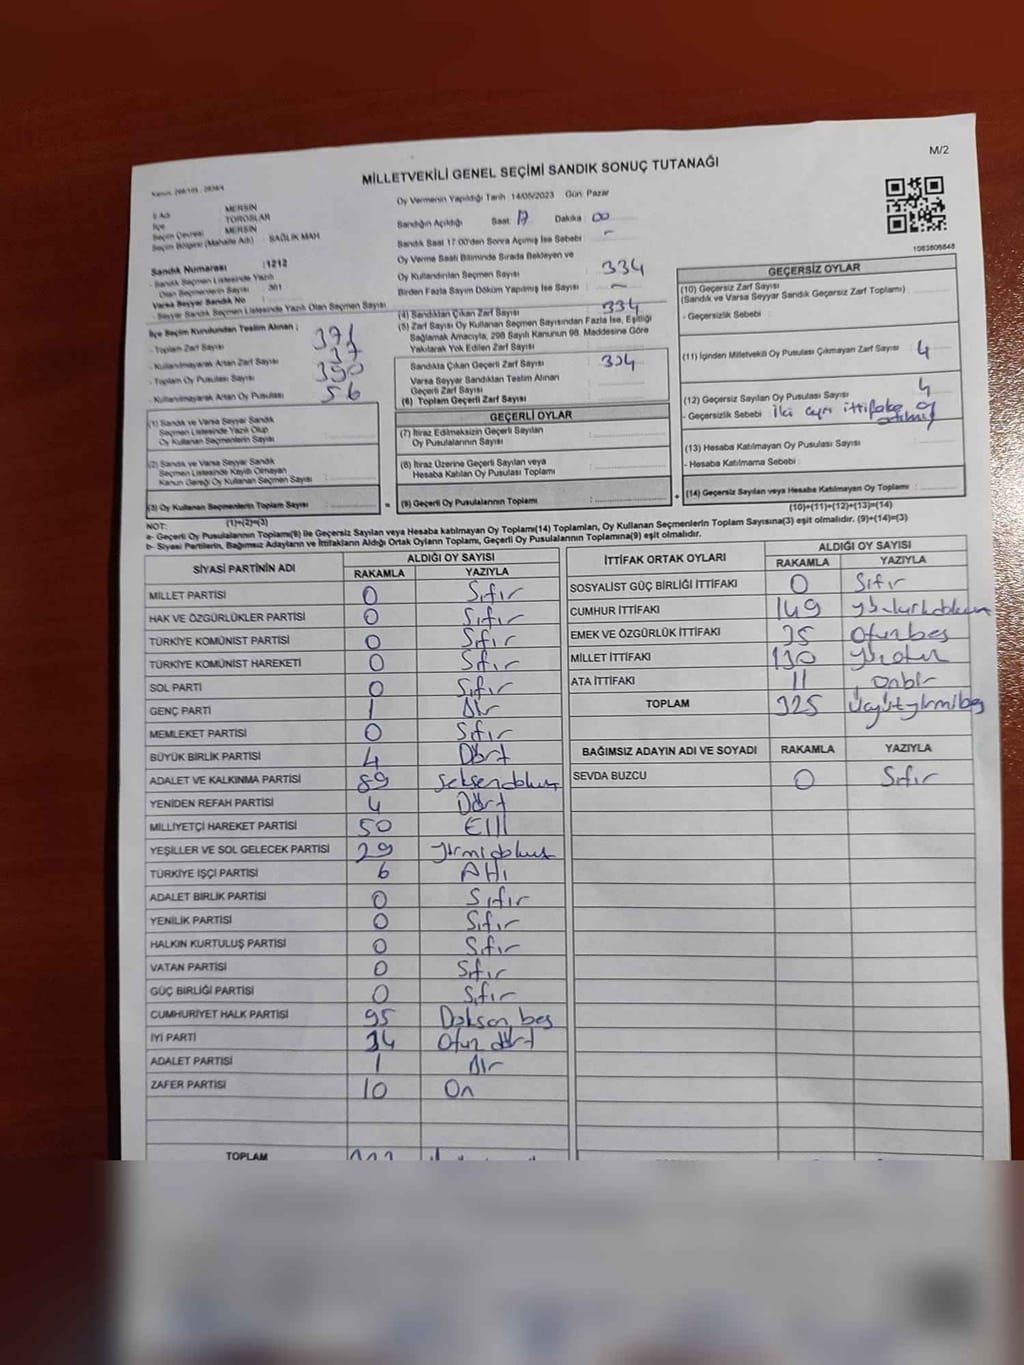 M/2
MİLLETVEKİLİ GENEL SEÇİMİ SANDIK SONUÇ TUTANAĞI
İl Adı : MERSİN
İlçe : TOROSLAR
Seçim Çevresi : MERSİN
Seçim Bölgesi (Mahalle Adı) : SAĞLIK MAH
Sandık Numarası :1212
- Sandık Seçmen Listesinde Yazılı
Olan Seçmenlerin Sayısı : 361
Varsa Seyyar Sandık No :
- Seyyar Sandık Seçmen Listesinde Yazılı Olan Seçmen Sayısı
İlçe Seçim Kurulundan Teslim Alınan ;
- Toplam Zarf Sayısı 371
- Kullanılmayarak Artan Zarf Sayısı 37
- Toplam Oy Pusulası Sayısı 390
- Kullanılmayarak Artan Oy Pusulası 56
(1) Sandık ve Varsa Seyyar Sandık
Seçmen Listesinde Yazılı Olup
Oy Kullanan Seçmenlerin Sayısı
(2) Sandık ve Varsa Seyyar Sandık
Seçmen Listesinde Kaydı Olmayan
Kanun Gereği Oy Kullanan Seçmen Sayısı
(3) Oy Kullanan Seçmenlerin Toplam Sayısı
(1)+(2)=(3)
Oy Vermenin Yapıldığı Tarih :14/05/2023 Gün: Pazar
Sandığın Açıldığı Saat : 17 Dakika : 00
Sandık Saat 17:00'den Sonra Açılmış İse Sebebi :
Oy Verme Saati Bitiminde Sırada Bekleyen ve
Oy Kullandırılan Seçmen Sayısı : 334
Birden Fazla Sayım Döküm Yapılmış İse Sayısı :
(4) Sandıktan Çıkan Zarf Sayısı : 334
(5) Zarf Sayısı Oy Kullanan Seçmen Sayısından Fazla İse, Eşitliği
Sağlamak Amacıyla, 298 Sayılı Kanunun 98. Maddesine Göre
Yakılarak Yok Edilen Zarf Sayısı
Sandıkta Çıkan Geçerli Zarf Sayısı : 334
Varsa Seyyar Sandıktan Teslim Alınan
Geçerli Zarf Sayısı
(6) Toplam Geçerli Zarf Sayısı
GEÇERLİ OYLAR
(7) İtiraz Edilmeksizin Geçerli Sayılan
Oy Pusulalarının Sayısı
(8) İtiraz Üzerine Geçerli Sayılan veya
Hesaba Katılan Oy Pusulası Sayısı
(9) Geçerli Oy Pusulalarının Toplamı
1063806848
GEÇERSİZ OYLAR
(10) Geçersiz Zarf Sayısı
(Sandık ve Varsa Seyyar Sandık Geçersiz Zarf Toplamı)
- Geçersizlik Sebebi :
(11) İçinden Milletvekili Oy Pusulası Çıkmayan Zarf Sayısı : 4
(12) Geçersiz Sayılan Oy Pusulası Sayısı : 4
- Geçersizlik Sebebi : İki ayrı ittifaka oy
(13) Hesaba Katılmayan Oy Pusulası Sayısı :
- Hesaba Katılmama Sebebi :
(14) Geçersiz Sayılan veya Hesaba Katılmayan Oy Toplamı :
(10)+(11)+(12)+(13)=(14)
NOT:
a- Geçerli Oy Pusulalarının Toplamı(9) ile Geçersiz Sayılan veya Hesaba katılmayan Oy Toplamı(14) Toplamları, Oy Kullanan Seçmenlerin Toplam Sayısına(3) eşit olmalıdır. (9)+(14)=(3)
b- Siyasi Partilerin, Bağımsız Adayların ve İttifakların Aldığı Ortak Oyların Toplamı, Geçerli Oy Pusulalarının Toplamına(9) eşit olmalıdır.
SİYASİ PARTİNİN ADI ALDIĞI OY SAYISI
RAKAMLA YAZIYLA
MİLLET PARTİSİ 0 Sıfır
HAK VE ÖZGÜRLÜKLER PARTİSİ 0 Sıfır
TÜRKİYE KOMÜNİST PARTİSİ 0 Sıfır
TÜRKİYE KOMÜNİST HAREKETİ 0 Sıfır
SOL PARTİ 0 Sıfır
GENÇ PARTİ 1 Bir
MEMLEKET PARTİSİ 0 Sıfır
BÜYÜK BİRLİK PARTİSİ 4 Dört
ADALET VE KALKINMA PARTİSİ 89 Seksendokuz
YENİDEN REFAH PARTİSİ 4 Dört
MİLLİYETÇİ HAREKET PARTİSİ 50 Elli
YEŞİLLER VE SOL GELECEK PARTİSİ 29 Yirmidokuz
TÜRKİYE İŞÇİ PARTİSİ 6 Altı
ADALET BİRLİK PARTİSİ 0 Sıfır
YENİLİK PARTİSİ 0 Sıfır
HALKIN KURTULUŞ PARTİSİ 0 Sıfır
VATAN PARTİSİ 0 Sıfır
GÜÇ BİRLİĞİ PARTİSİ 0 Sıfır
CUMHURİYET HALK PARTİSİ 95 Doksan beş
İYİ PARTİ 34 Otuz dört
ADALET PARTİSİ 1 Bir
ZAFER PARTİSİ 10 On
TOPLAM
İTTİFAK ORTAK OYLARI ALDIĞI OY SAYISI
RAKAMLA YAZIYLA
SOSYALİST GÜÇ BİRLİĞİ İTTİFAKI 0 Sıfır
CUMHUR İTTİFAKI 149 Yüzkırkdokuz
EMEK VE ÖZGÜRLÜK İTTİFAKI 35 Otuzbeş
MİLLET İTTİFAKI 130 Yüzotuz
ATA İTTİFAKI 11 Onbir
TOPLAM 325 Üçyüzyirmibeş
BAĞIMSIZ ADAYIN ADI VE SOYADI RAKAMLA YAZIYLA
SEVDA BUZCU 0 Sıfır